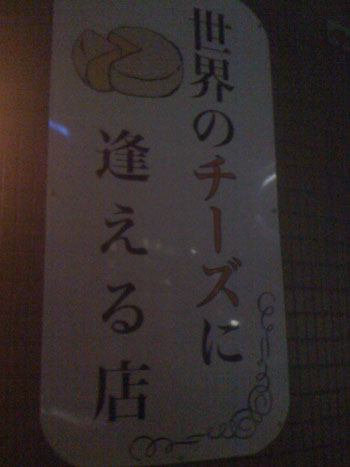 世界のチーズに
逢える店